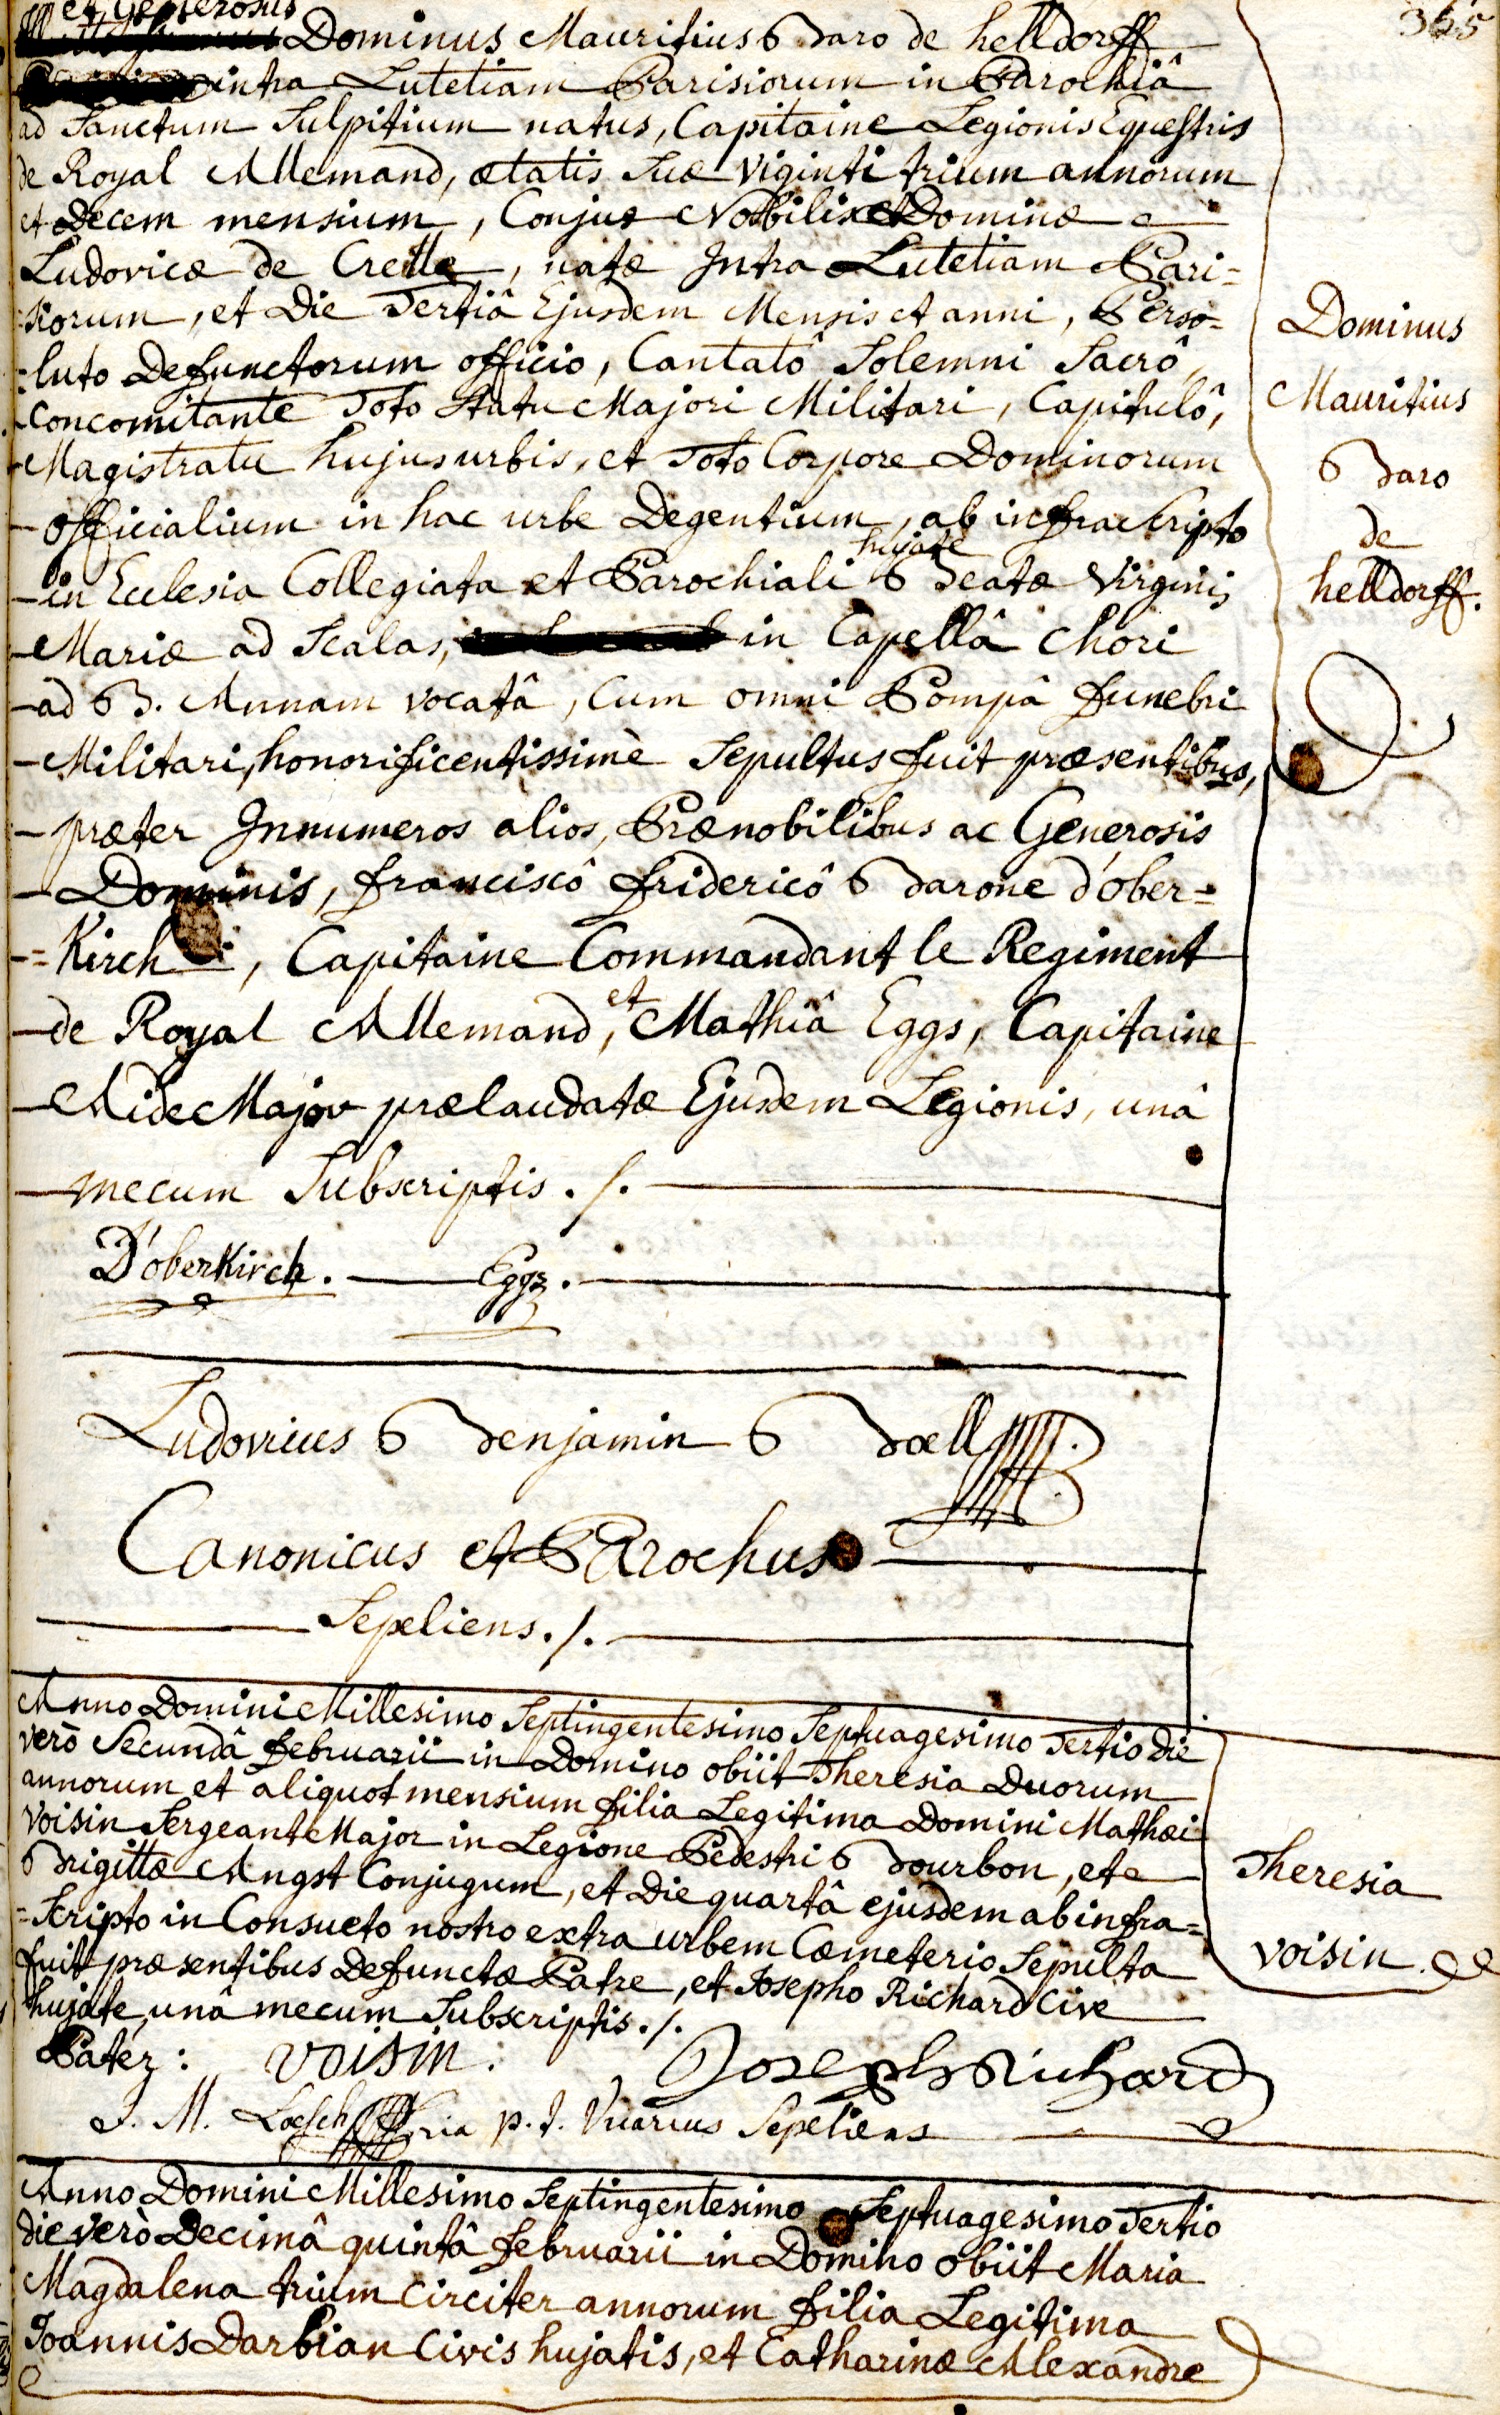 365
et Generosus
Dominus Mauritius Baro de helldorff
intra Lutetiam Parisiorum in Parochiâ
ad Sanctum Sulpitium natus, Capitaine Legionis Equestris
de Royal Allemand, ætatis Suæ viginti trium annorum
et Decem mensium, Conjux Nobilis Dominæ
Ludovicæ de Crelle, natæ Intra Lutetiam Pari=
=siorum, et Die Tertiâ Ejusdem Mensis et anni, Perso=
=luto Defunctorum officio, Cantatô Solemni Sacrô,
concomitante Toto Statu Majori Militari, Capitulô,
Magistratu hujus urbis, et Toto Corpore Dominorum
officialium in hac urbe Degentium, ab infra Scripto
hujate
in Ecclesia Collegiata et Parochiali Beatæ Virginis
Mariæ ad Scalas, in Capellâ Chori
ad B. Annam vocatâ, Cum omni Pompâ funebri
Militari, honorificentissimè Sepultus fuit præsentibus,
præter Innumeros alios, Prænobilibus ac Generosis
Dominis, franciscô fridericô Barone d'ober=
=Kirch, Capitaine Commandant le Regiment
de Royal Allemand, et Mathiâ Eggs, Capitaine
Aide Major prælaudatæ Ejusdem Legionis, unâ
mecum Subscriptis ./.
Dominus
Mauritius
Baro
de
helldorff.
D'oberkirch. Eggs.
Ludovicus Benjamin Bœll
Canonicus et Parochus
Sepeliens./.
Anno Domini Millesimo Septingentesimo Septuagesimo Tertio Die
verò Secundâ februarii in Domino obiit Theresia Duorum
annorum et aliquot mensium filia Legitima Domini Mathæi
Voisin Sergeant Major in Legione Pedestri Bourbon, et
Brigittæ Angst Conjugum, et Die quartâ ejusdem ab infra=
=Scripto in Consueto nostro extra urbem Cæmeterio Sepulta
fuit præsentibus Defunctæ Patre, et Josepho Richard Cive
hujate, unâ mecum Subscriptis./.
Theresia
voisin.
Patér: voisin: Joseph Richard
J. M. Lœsch p. t. Vicarius Sepeliens
Anno Domini Millesimo Septingentesimo Septuagesimo Tertio
die verò Decimâ quintâ februarii in Domino obiit Maria
Magdalena trium circiter annorum filia Legitima
Joannis Darbian Civis hujatis, et Catharinæ Alexandre